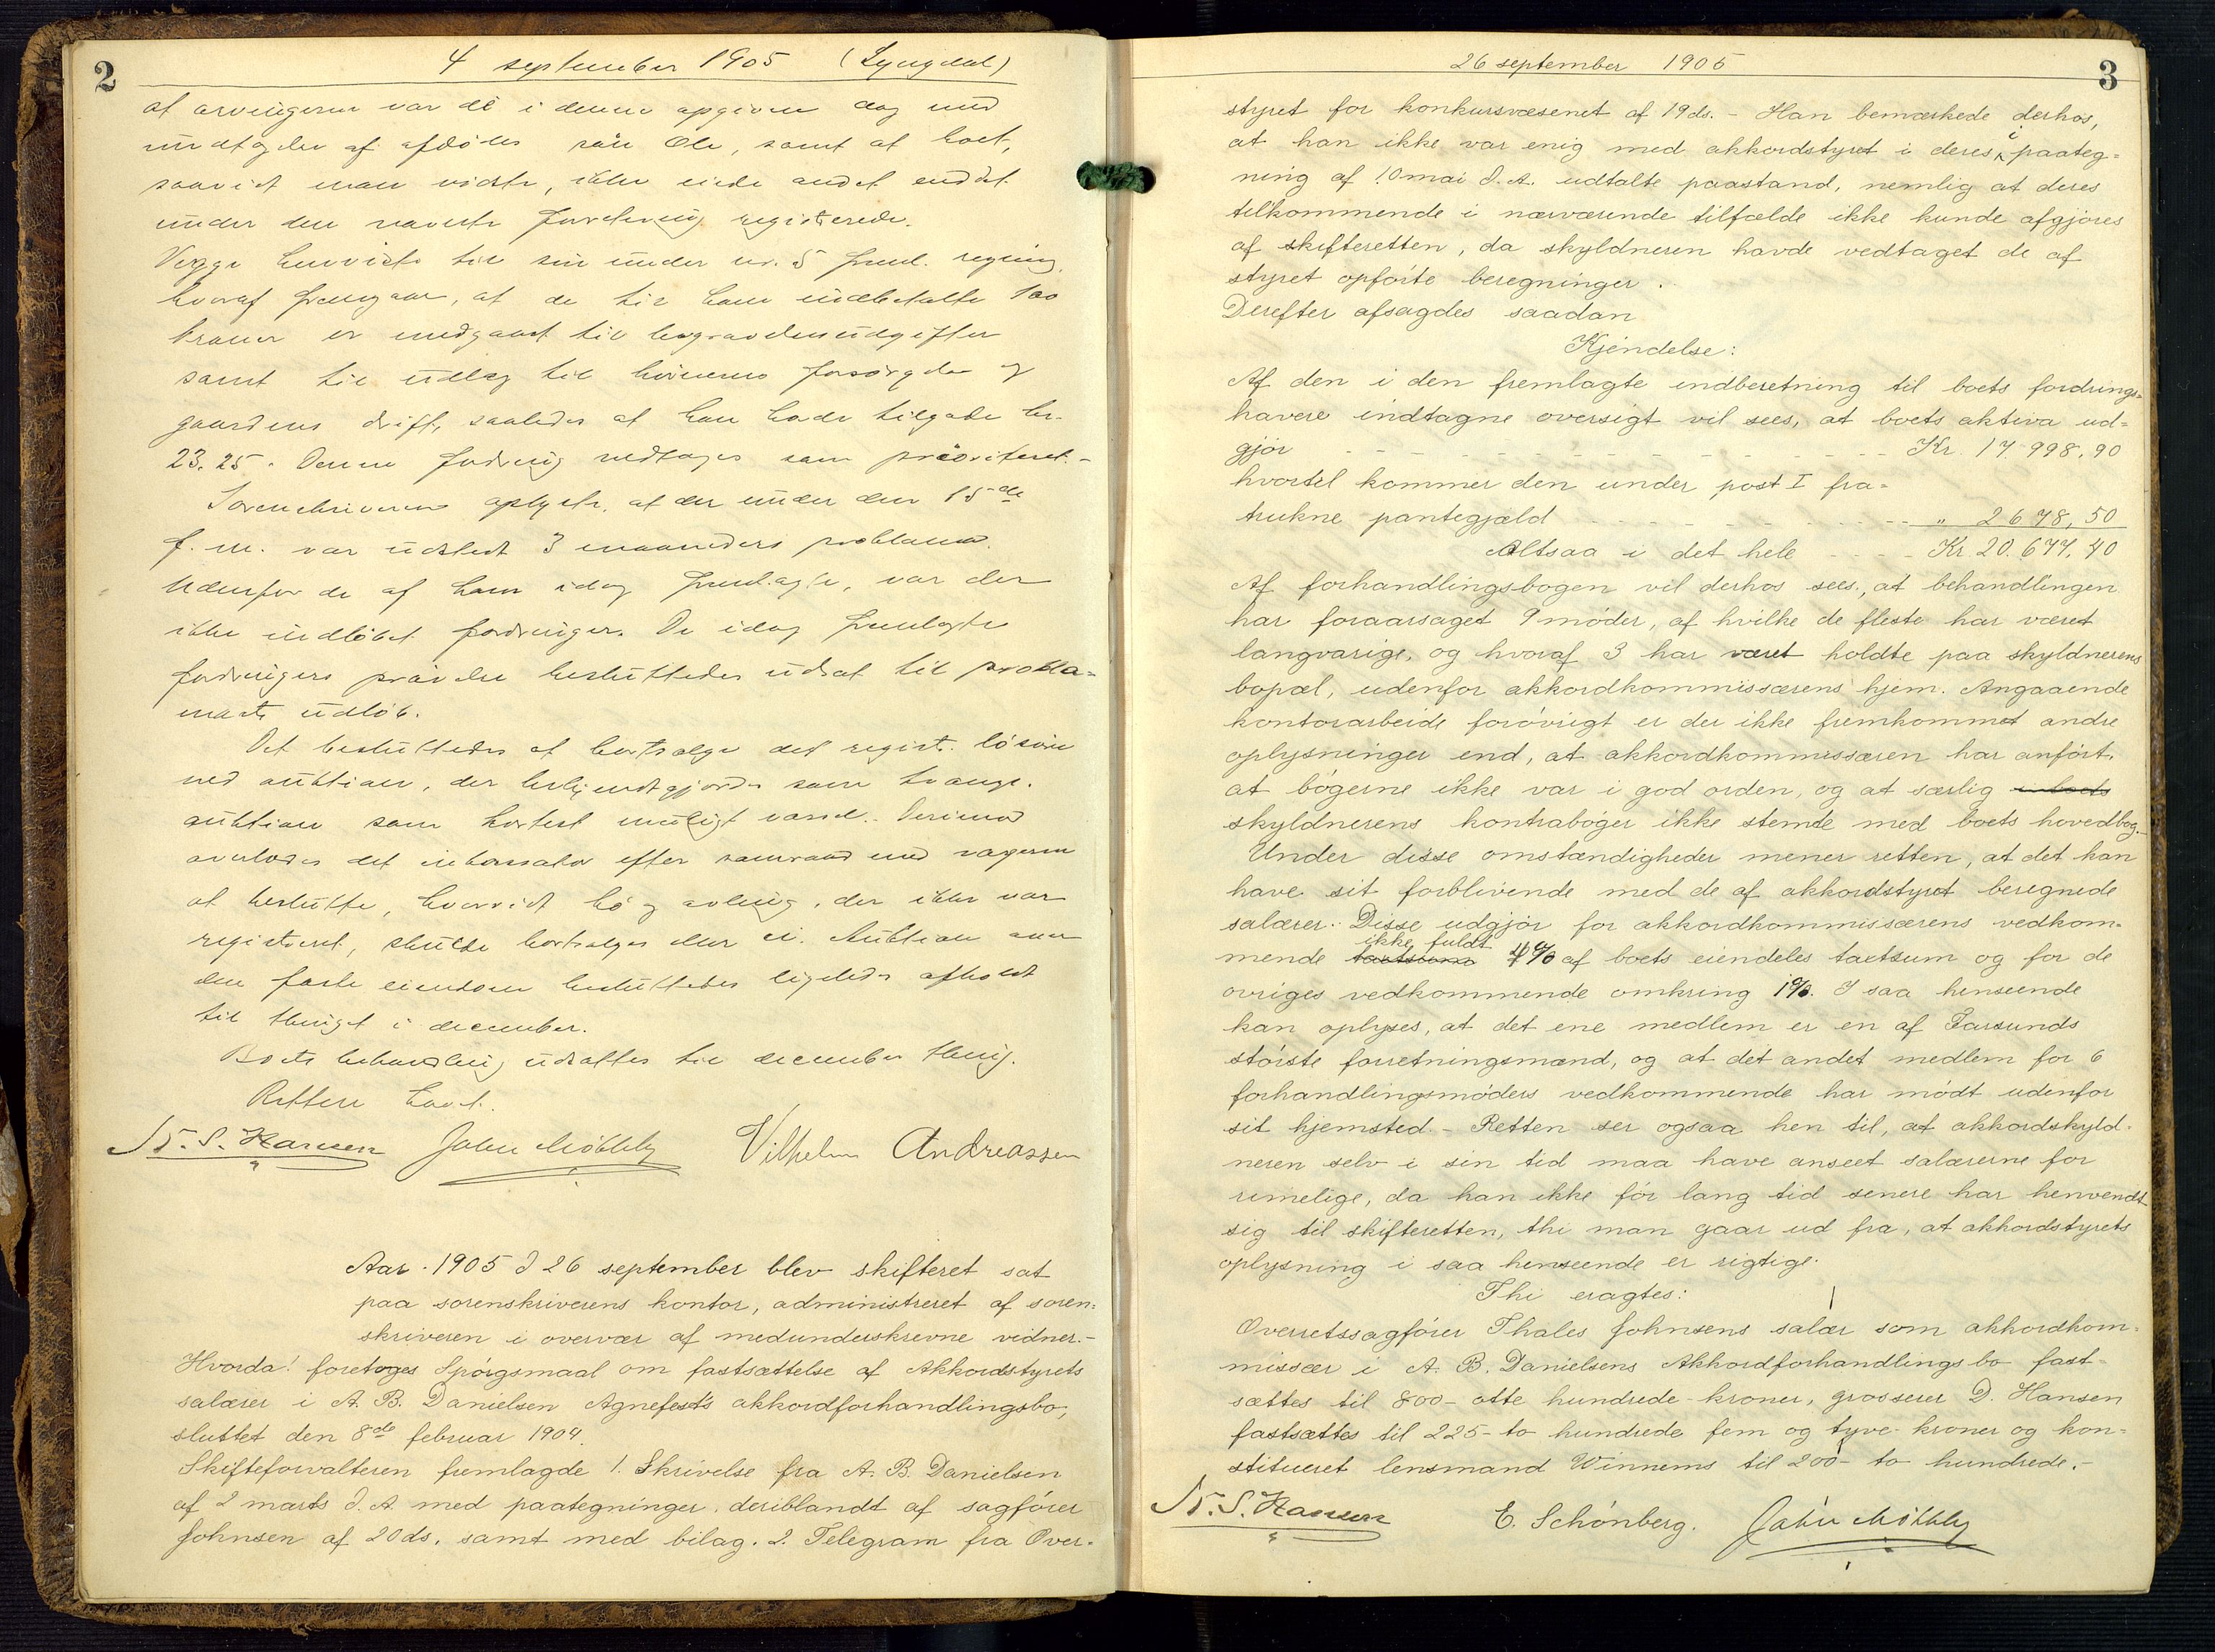 2
4 september 1905 (Lyngdal)
at arvingerne var de i denne opgivne dog med
undtagelse af afdødes søn Ole, samt at boet,
saavidt man vidste, ikke eiede andet end det
under den nævnte forretning registrerede.
Vegge henviste til sin under nr. 5 freml. regning,
hvoraf fremgaar, at de til ham indbetalte 100
kroner er medgaaet til begravelsesudgifter
samt til udlæg til børnenes forsørgelse og
gaardens drift, saaledes at han havde tilgode kr.
23.25. Denne fordring vedtages som prioriteret.-
Sorenskriveren oplyste, at der under den 15de
f. m. var udstedt 3 maaneders proklama.
Udenfor de af ham idag fremlagte, var der
ikke indløbet fordringer. De idag fremlagte
fordringers prøvelse besluttedes udsat til prokla-
mats udløb.
Det besluttedes at bortsælge det registr. løsøre
ved auktion, der bekjendtgjordes som tvangs-
auktion som hertest muligt vand. Derimod
overlodes det inkassator efter samraad med vægerne
at beslutte, hvorvidt hø og avling, der ikke var
registreret, skulde bortsælges eller ei. Auktion over
den faste eiendom besluttedes ligeledes afholdt
til thinget i december.
Boets behandling udsattes til december thing.
Retten hævet.
N. S. Hansen John Møkkly Vilhelm Andreassen
Aar 1905 d 26 september blev skifteret sat
paa sorenskriverens kontor, administreret af soren=
skriveren i overvær af medunderskrevne vidner.-
Hvorda! foretoges Spørgsmaal om fastsættelse af Akkordstyrets
salærer i A. B. Danielsen Agnefest's akkordforhandlingsbo,
sluttet den 8de februar 1904.
Skifteforvalteren fremlagde 1. Skrivelse fra A. B. Danielsen
af 2 marts d. A. med paategninger, deriblandt af sagfører
Johnsen af 20 ds. samt med bilag. 2. Telegram fra Over-
3
26 september 1905
styret for konkursvæsenet af 19 ds. - Han bemærkede derhos,
at han ikke var enig med akkordstyret i deres i paateg=
ning af 10 mai d. A. udtalte paastand, nemlig at deres
tilkommende i nærværende tilfælde ikke kunde afgjøres
af skifteretten, da skyldneren havde vedtaget de af
styret opførte beregninger.
Derefter afsagdes saadan
Kjendelse:
Af den i den fremlagte indberetning til boets fordrings=
havere indtagne oversigt vil sees, at boets aktiva ud=
gjør - - - - - - - - - - Kr. 17.998,90
hvortil kommer den under post I fra=
trukne pantegjæld - - - - - - " 2678,50
Altsaa i det hele - - - - Kr. 20.677,40
Af forhandlingsbogen vil derhos sees, at behandlingen
har foraarsaget 9 møder, af hvilke de fleste har været
langvarige, og hvoraf 3 har været holdte paa skyldnerens
bopæl, udenfor akkordkommissærens hjem. Angaaende
kontorarbeide forøvrigt er der ikke fremkommet andre
oplysninger end, at akkordkommissæren har anført,
at bøgerne ikke var i god orden, og at særlig i boets
skyldnerens kontrabøger ikke stemte med boets hovedbog.-
Under disse omstændigheder mener retten, at det kan
have sit forblivende med de af akkordstyret beregnede
salærer. Disse udgjør for akkordkommissærens vedkom-
ikke fuldt
mende taktsum 4% af boets eiendeles taktsum og for de
øvriges vedkommende omkring 1%. I saa henseende
kan oplyses, at det ene medlem er en af Farsunds
største forretningsmænd, og at det andet medlem for 6
forhandlingsmøders vedkommende har mødt udenfor
sit hjemsted.- Retten ser ogsaa hen til, at akkordskyld-
neren selv i sin tid maa have anseet salærerne for
rimelige, da han ikke før lang tid senere har henvendt
sig til skifteretten, thi man gaar ud fra, at akkordstyrets
oplysning i saa henseende er rigtige.
Thi eragtes:
Overretssagfører Thales Johnsens salær som akkordkom-
missær i A. B. Danielsens Akkordforhandlingsbo fast-
sættes til 800- otte hundrede - kroner, grosserer D. Hansen
fastsættes til 225- to hundrede fem og tyve - kroner og kon-
stitueret lensmand Winnems til 200- to hundrede.-
N. S. Hansen E. Schønberg. John Møkkly